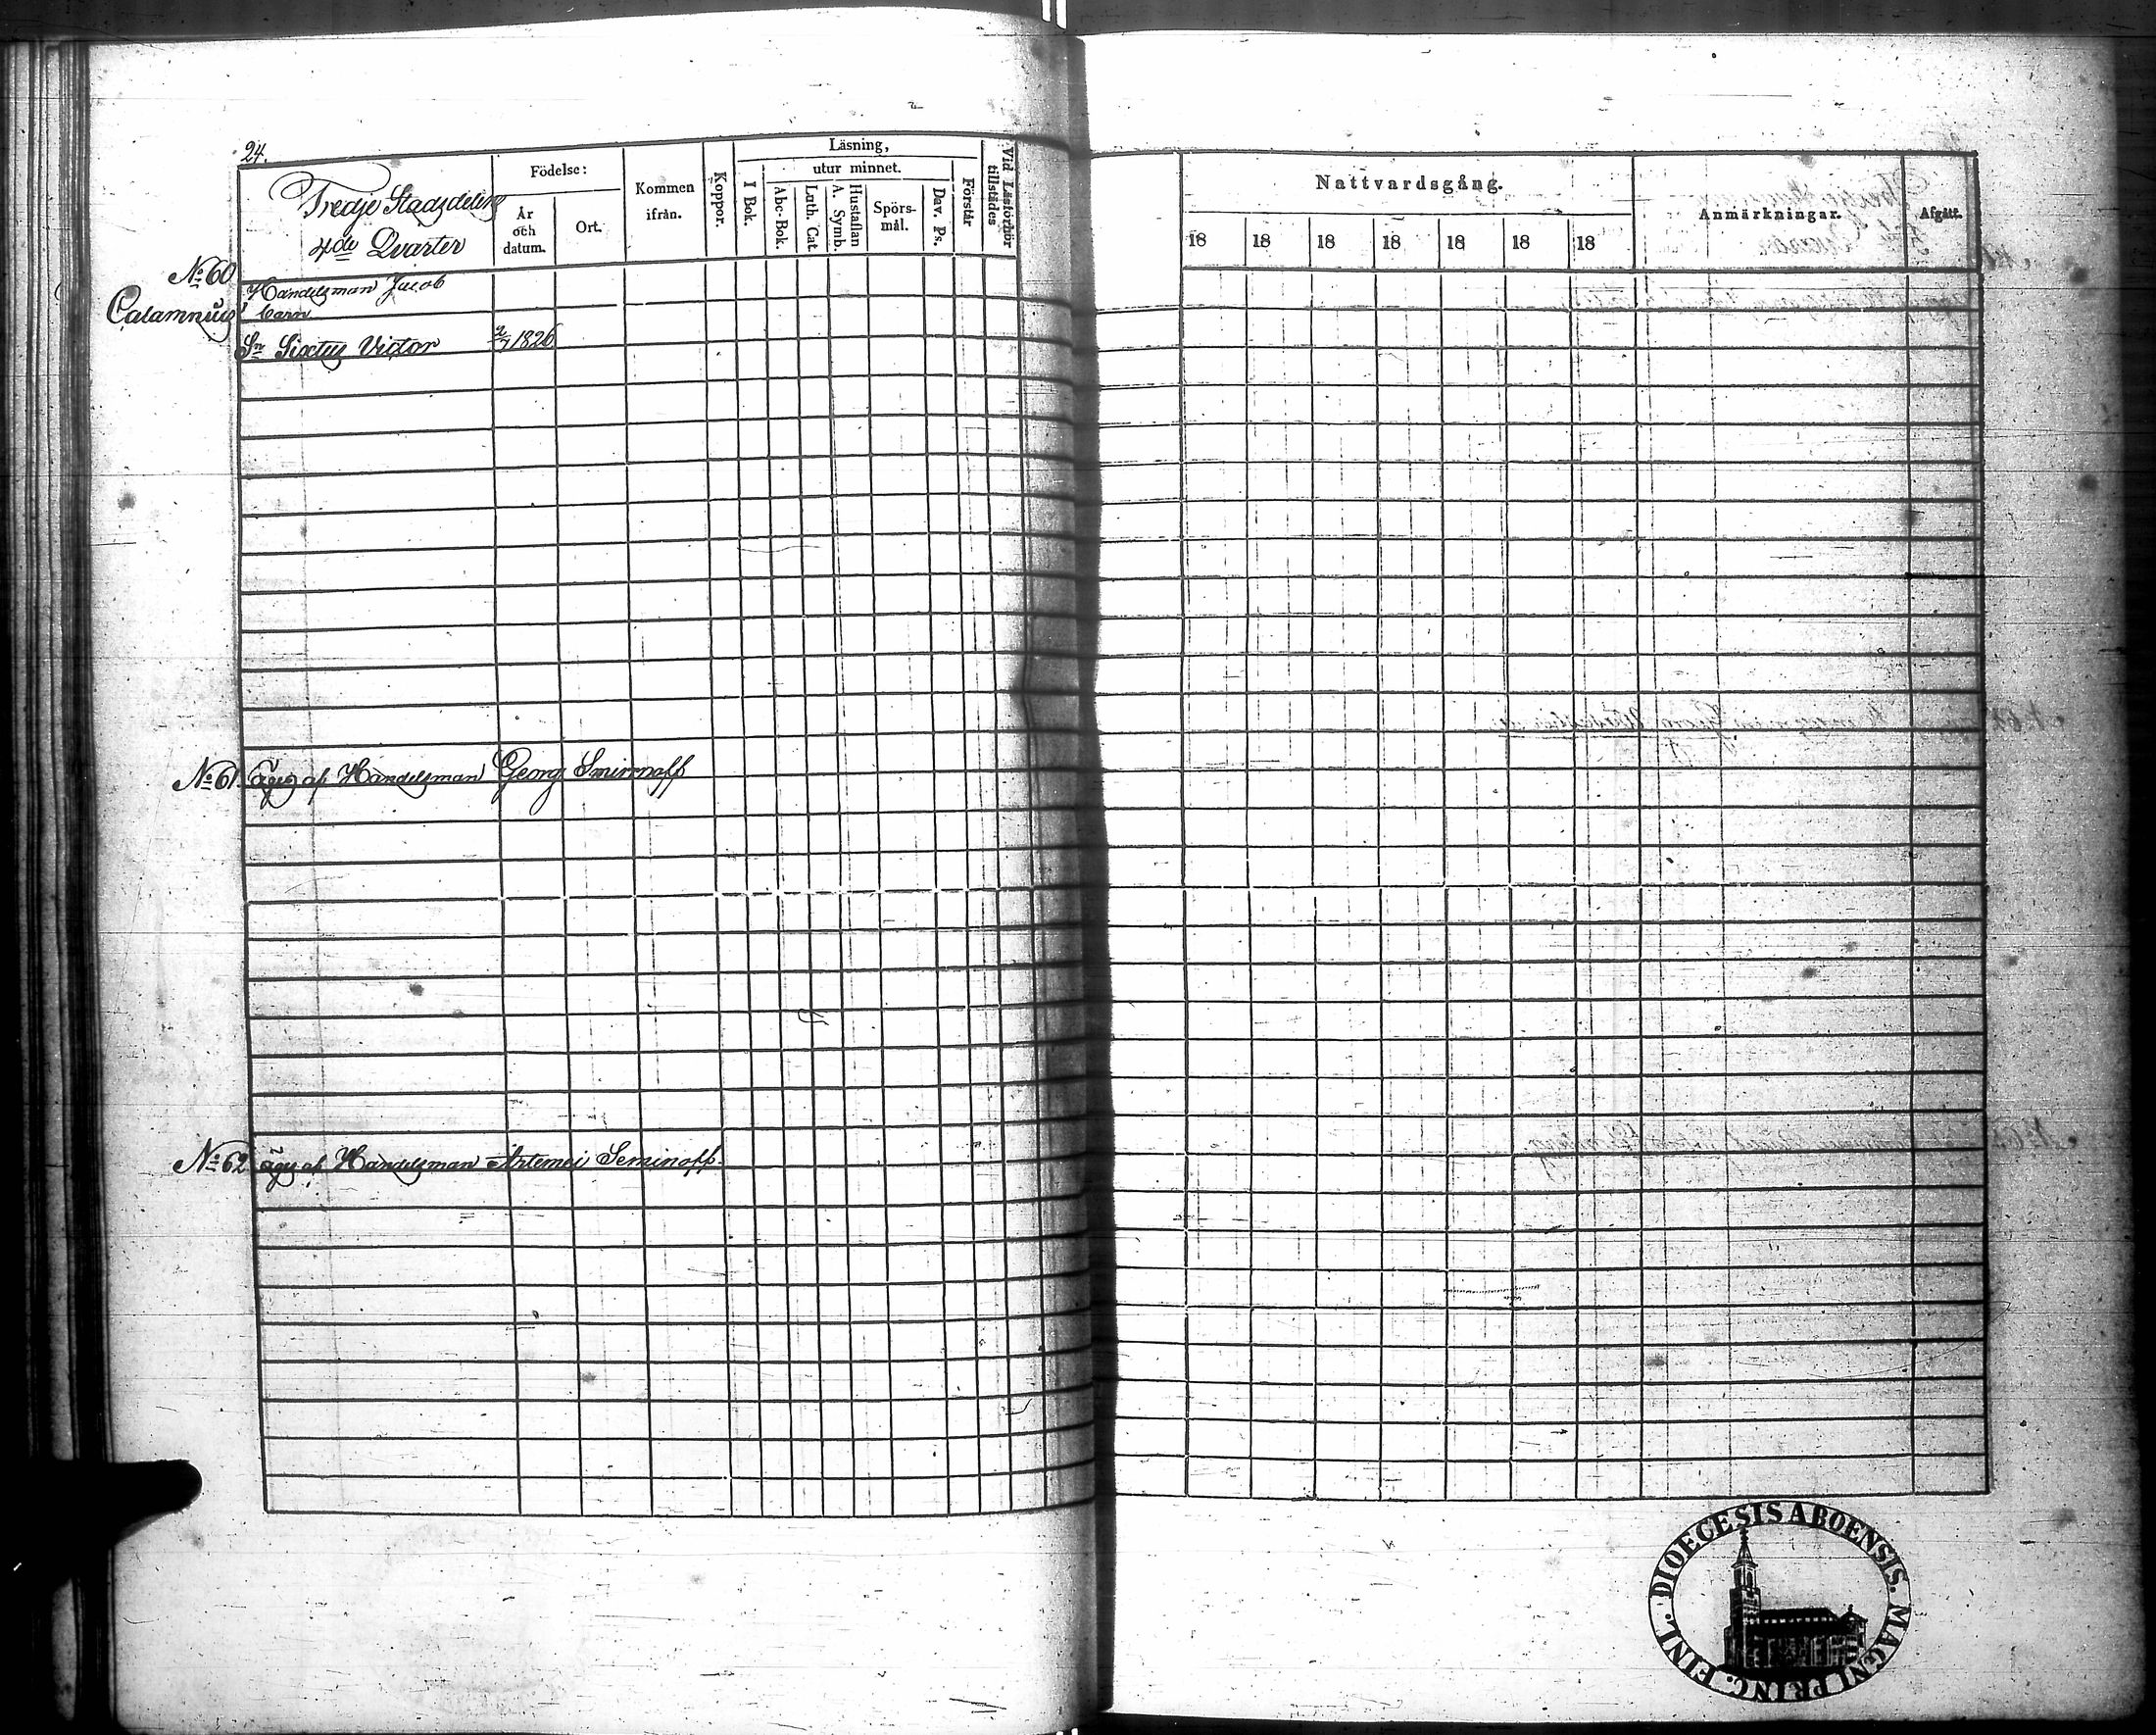 24.
Tredje Stadsdelen
4de Quarter
Födelse:
År och datum.
Ort.
Kommen ifrån.
Koppor.
Läsning,
utur minnet.
I Bok.
Abc-Bok.
Luth. Cat.
A. Symb.
Hustaflan
Spörsmål.
Dav. Ps.
Förstår
Vid Läsförhör tillstädes
Nattvardsgång.
18 18 18 18 18 18 18
Anmärkningar.
Afgått.
No 60
Calamnius
Handelsman Jacob
barn
Sn Sixtus Victor 2/7 1826
No 61. äges af Handelsman Georg Smirnoff
No 62 äges af Handelsman Artemei Seminoff.
DIOECESIS ABOENSIS. MAGNI PRINC. FINL.